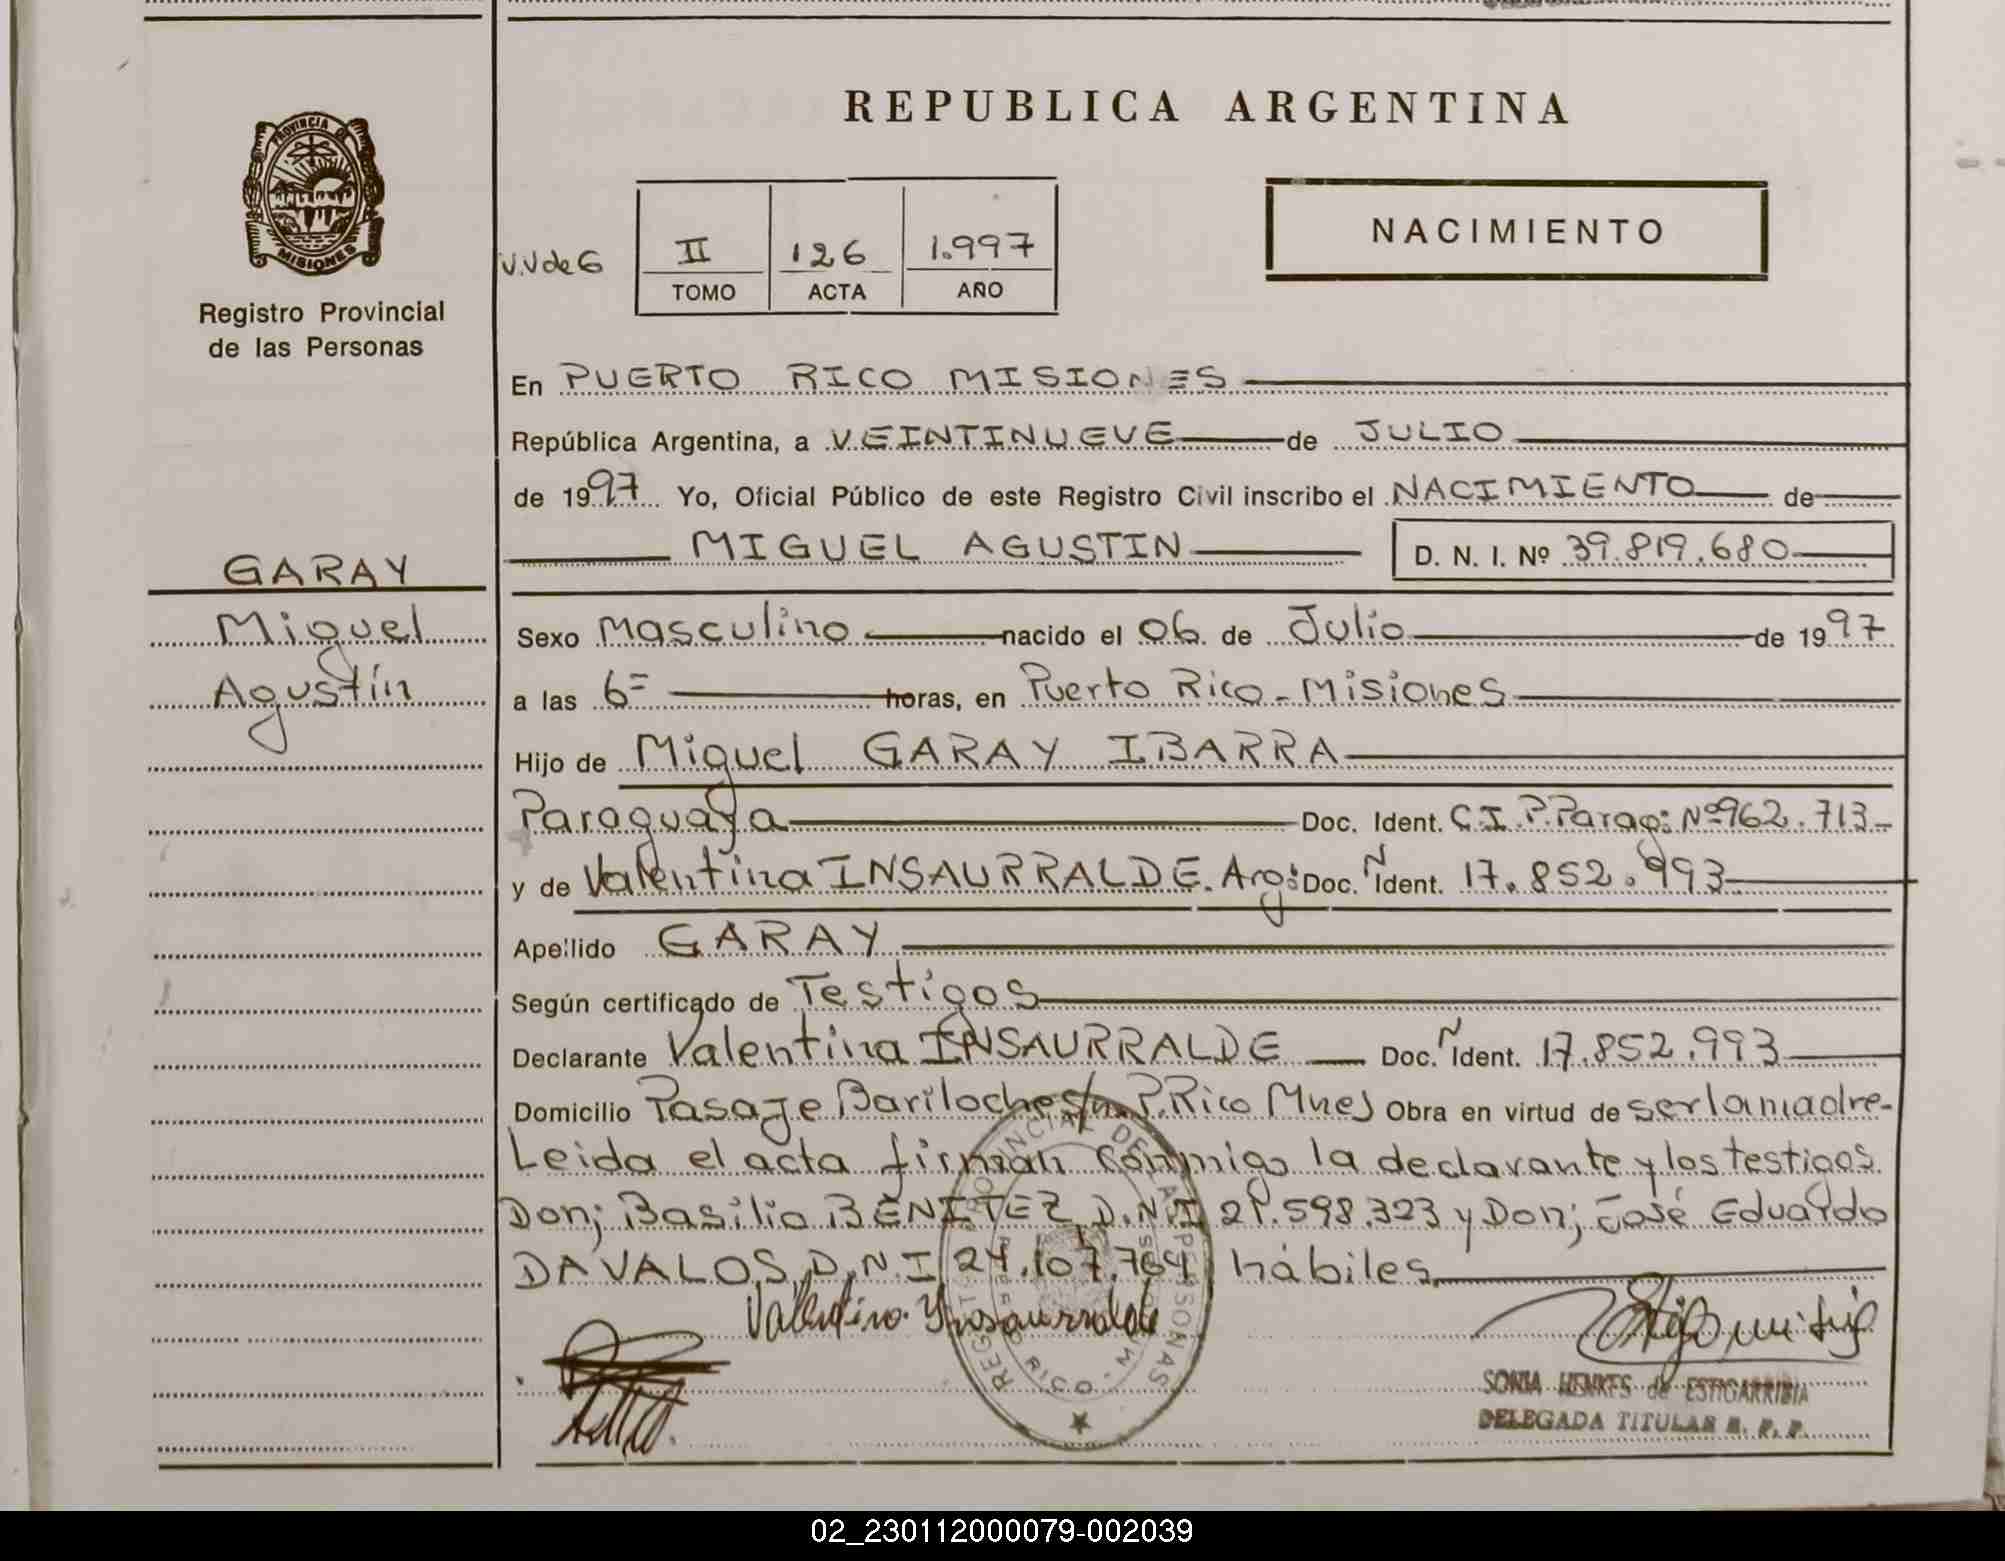 REPUBLICA ARGENTINA
PROVINCIA DE
MISIONES
Registro Provincial
de las Personas
NACIMIENTO
V.V de G
II 126 1.997
TOMO ACTA AÑO
En PUERTO RICO MISIONES
República Argentina, a VEINTINUEVE de JULIO
de 1997 Yo, Oficial Público de este Registro Civil inscribo el NACIMIENTO de
MIGUEL AGUSTIN D. N. I. Nº 39.819.680
GARAY
Miguel
Agustín
Sexo Masculino nacido el 06 de Julio de 1997
a las 6= horas, en Puerto Rico - Misiones
Hijo de Miguel GARAY IBARRA
Paraguaya Doc. Ident. C.I.P. Parag: Nº 962.713-
y de Valentina INSAURRALDE. Arg: Doc. N Ident. 17.852.993
Apellido GARAY
Según certificado de Testigos
Declarante Valentina INSAURRALDE Doc. N Ident. 17.852.993
Domicilio Pasaje Bariloche s/n. P.Rico Mnes Obra en virtud de ser la madre-
Leida el acta firman conmigo la declarante y los testigos
Don; Basilio BENITEZ D.N.I 21.598.323 y Don; José Eduardo
DAVALOS D.N.I 24.107.764 hábiles
Valentina Ynsaurralde
REGISTRO PROVINCIAL DE LAS PERSONAS
PUERTO RICO - MISIONES
SONIA HENKES de ESTIGARRIBIA
DELEGADA TITULAR R. P. P.
02_230112000079-002039